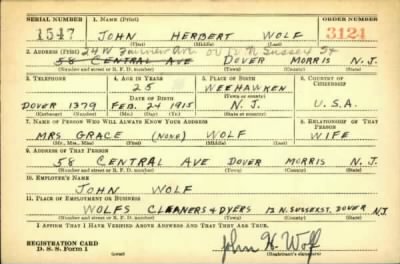 SERIAL NUMBER 1. NAME (Print) ORDER NUMBER
1547 JOHN HERBERT WOLF 3124
(First) (Middle) (Last)
2. ADDRESS (Print) 24 W Fairview Ave or 12 N Sussex St
58 CENTRAL AVE DOVER MORRIS N.J.
(Number and street or R. F. D. number) (Town) (County) (State)
3. TELEPHONE 4. AGE IN YEARS 5. PLACE OF BIRTH 6. COUNTRY OF CITIZENSHIP
25 WEEHAWKEN
DATE OF BIRTH (Town or county)
DOVER 1379 FEB. 24 1915 N.J. U.S.A.
(Exchange) (Number) (Mo.) (Day) (Yr.) (State or country)
7. NAME OF PERSON WHO WILL ALWAYS KNOW YOUR ADDRESS 8. RELATIONSHIP OF THAT PERSON
MRS GRACE (NONE) WOLF WIFE
(Mr., Mrs., Miss) (First) (Middle) (Last)
9. ADDRESS OF THAT PERSON
58 CENTRAL AVE DOVER MORRIS N.J.
(Number and street or R. F. D. number) (Town) (County) (State)
10. EMPLOYER'S NAME
JOHN WOLF
11. PLACE OF EMPLOYMENT OR BUSINESS
WOLFS CLEANERS & DYERS 12 N. SUSSEX ST. DOVER NJ
(Number and street or R. F. D. number) (Town) (County) (State)
I AFFIRM THAT I HAVE VERIFIED ABOVE ANSWERS AND THAT THEY ARE TRUE.
REGISTRATION CARD
D. S. S. Form 1 (over) John H. Wolf
(Registrant's signature)